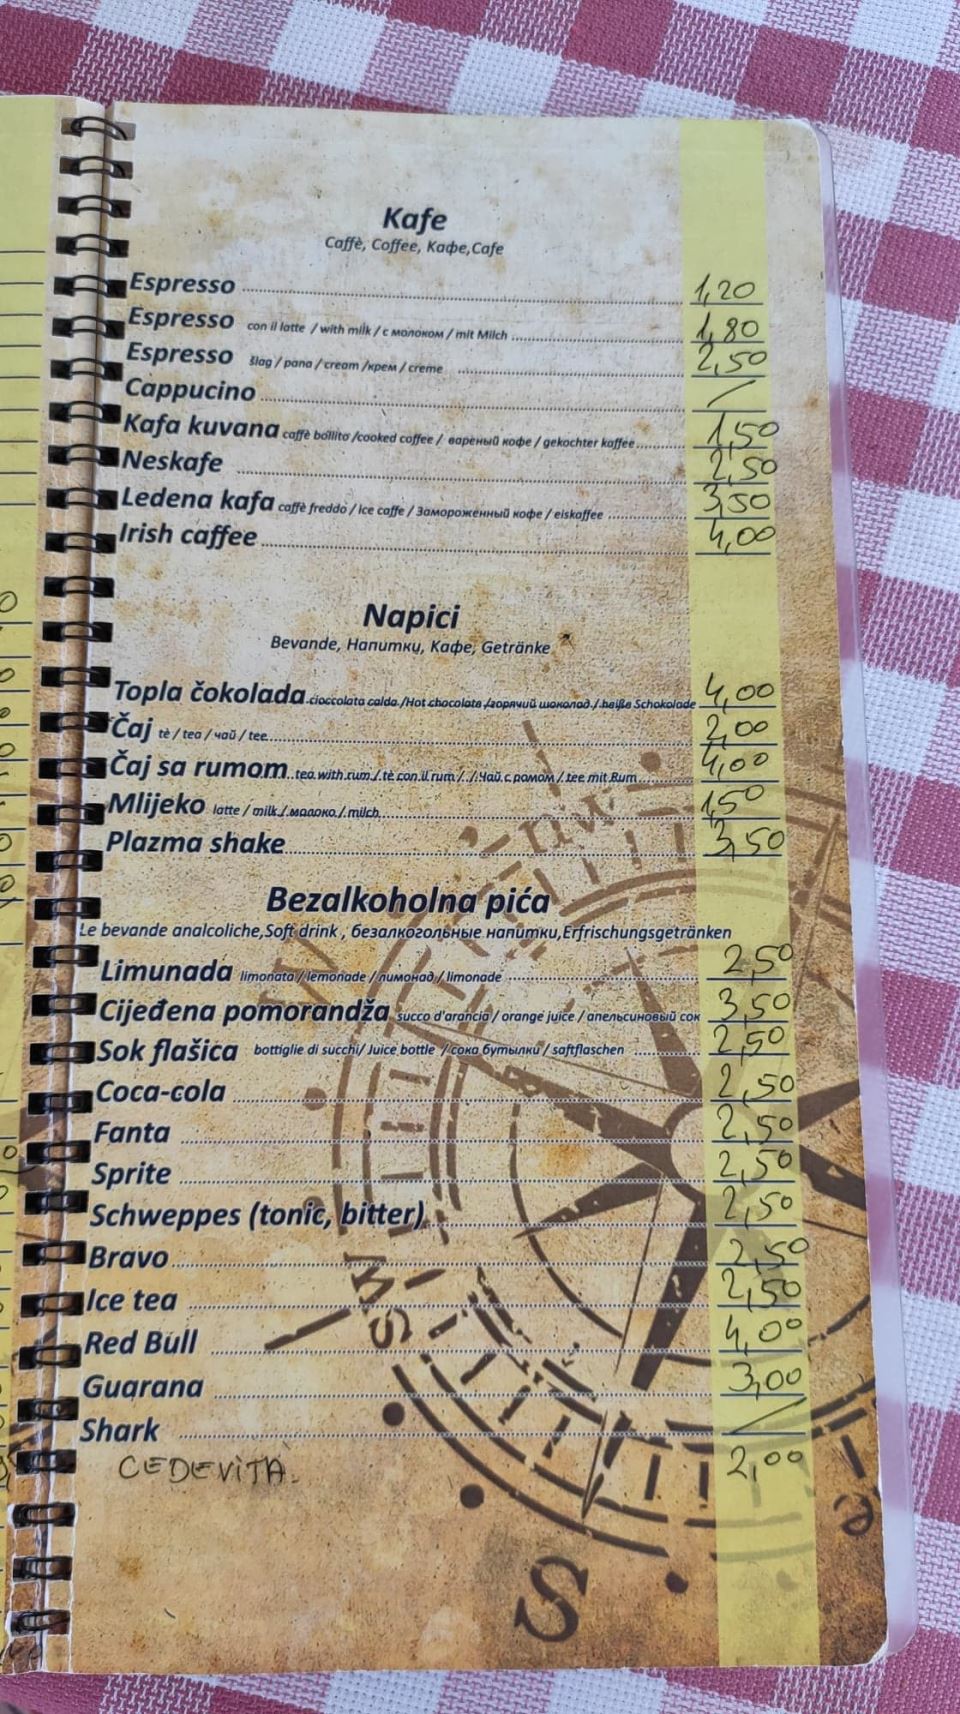 Kafe
Caffè, Coffee, Кафе,Cafe
Espresso 1,20
Espresso con il latte / with milk / с молоком / mit Milch 1,80
Espresso šlag / pana / cream /крем / creme 2,50
Cappucino /
Kafa kuvana caffè bollito /cooked coffee / вареный кофе / gekochter kaffee 1,50
Neskafe 2,50
Ledena kafa caffè freddo / ice caffe / Замороженный кофе / eiskaffee 3,50
Irish caffee 4,00
Napici
Bevande, Напитки, Кафе, Getränke
Topla čokolada cioccolata calda /Hot chocolate /горячий шоколад / heiße Schokolade 4,00
Čaj tè / tea / чай / tee 2,00
Čaj sa rumom tea with rum / tè con il rum / / Чай с ромом / tee mit Rum 4,00
Mlijeko latte / milk / молоко / milch 1,50
Plazma shake 3,50
Bezalkoholna pića
Le bevande analcoliche,Soft drink , безалкогольные напитки,Erfrischungsgetränken
Limunada limonata / lemonade / лимонад / limonade 2,50
Cijeđena pomorandža succo d'arancia / orange juice / апельсиновый сок 3,50
Sok flašica bottiglie di succhi/ Juice bottle / сока бутылки / saftflaschen 2,50
Coca-cola 2,50
Fanta 2,50
Sprite 2,50
Schweppes (tonic, bitter) 2,50
Bravo 2,50
Ice tea 2,50
Red Bull 4,00
Guarana 3,00
Shark /
CEDEVITA 2,00
S